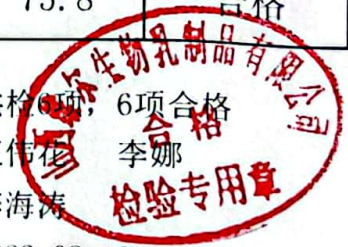 75.8 合格
检6项，6项合格
伟花 李娜
海涛
生物乳制品有限公司
合格
检验专用章